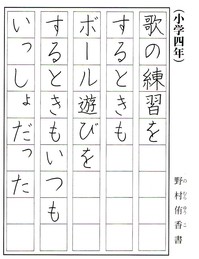 （小学四年）
歌の練習を
するときも
ボール遊びを
するときもいつも
いっしょだった
野村侑香書
のむらゆうこ